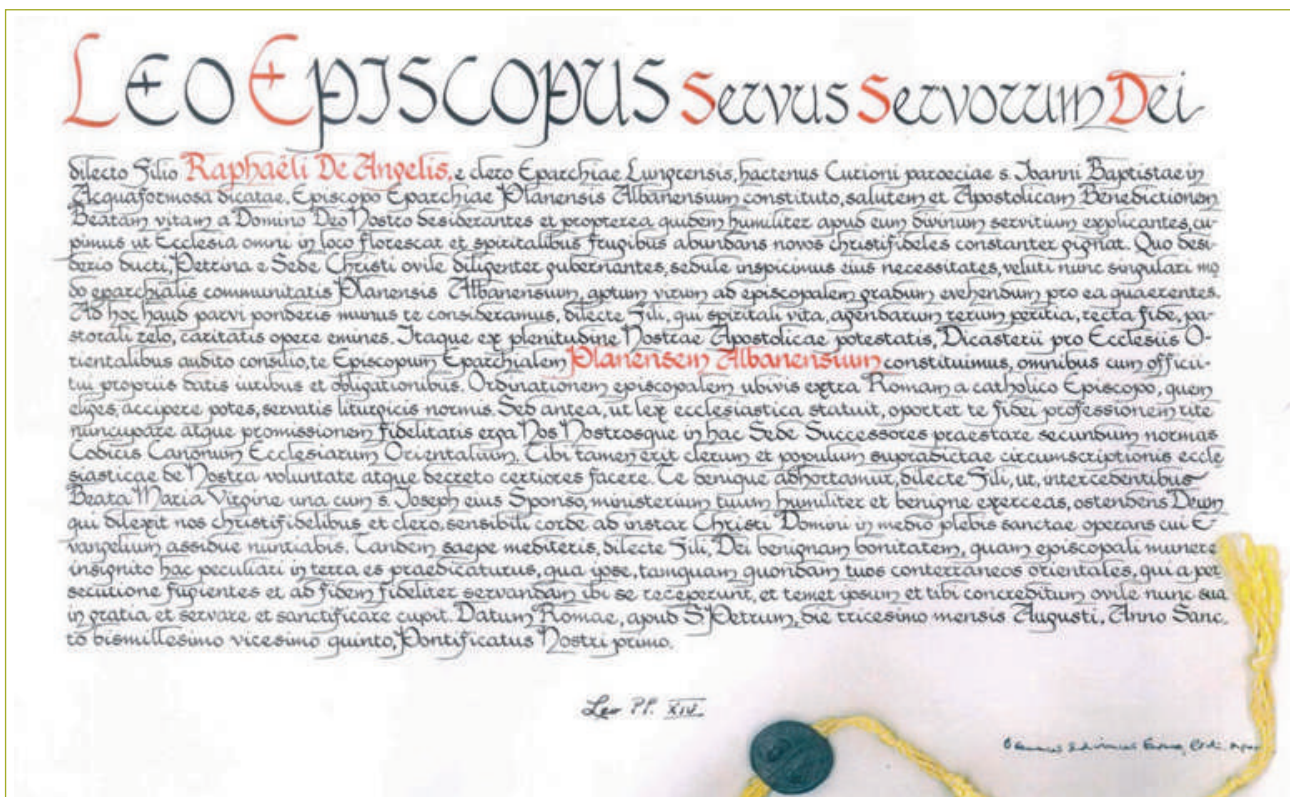 LEO EPISCOPUS Servus Servorum Dei
dilecto Filio Raphaëli De Angelis, e clero Eparchiae Lungrensis, hactenus Curioni paroeciae s. Ioanni Baptistae in
Acquaformosa dicatae, Episcopo Eparchiae Planensis Albanensium constituto, salutem et Apostolicam Benedictionem
Beatam vitam a Domino Deo Nostro desiderantes et propterea quidem humiliter apud eum divinum servitium explicantes, cu-
pimus ut Ecclesia omni in loco florescat et spiritalibus frugibus abundans novos christifideles constanter gignat. Quo desi-
derio ducti, Petrina e Sede Christi ovile diligenter gubernantes, sedule inspicimus eius necessitates, veluti nunc singulari mo
do eparchialis communitatis Planensis Albanensium, aptum virum ad episcopalem gradum evehendum pro ea quaerentes.
Ad hoc haud parvi ponderis munus te consideramus, dilecte Fili, qui spiritali vita, agendarum rerum peritia, recta fide, pa-
storali zelo, caritatis opere emines. Itaque ex plenitudine Nostrae Apostolicae potestatis, Dicasterii pro Ecclesiis O-
rientalibus audito consilio, te Episcopum Eparchialem Planensem Albanensium constituimus, omnibus cum officii-
tui propriis datis iuribus et obligationibus. Ordinationem episcopalem ubivis extra Romam a catholico Episcopo, quem
eliges, accipere potes, servatis liturgicis normis. Sed antea, ut lex ecclesiastica statuit, oportet te fidei professionem rite
nuncupare atque promissionem fidelitatis erga Nos Nostrosque in hac Sede Successores praestare secundum normas
Codicis Canonum Ecclesiarum Orientalium. Tibi tamen erit clerum et populum supradictae circumscriptionis eccle
siasticae de Nostra voluntate atque decreto certiores facere. Te denique adhortamur, dilecte Fili, ut, intercedentibus
Beata Maria Virgine una cum s. Joseph eius Sponso, ministerium tuum humiliter et benigne exerceas, ostendens Deum
qui dilexit nos christifidelibus et clero, sensibili corde ad instar Christi Domini in medio plebis sanctae operans cui E-
vangelium assidue nuntiabis. Tandem saepe mediteris, dilecte Fili, Dei benignam bonitatem, quam episcopali munere
insignito hac peculiari in terra es praedicaturus, qua ipse, tamquam quondam tuos conterraneos orientales, qui a per
secutione fugientes et ad fidem fideliter servandam ibi se receperunt, et temet ipsum et tibi concreditum ovile nunc sua
in gratia et servare et sanctificare cupit. Datum Romae, apud S. Petrum, die tricesimo mensis Augusti, Anno Sanc-
to bismillesimo vicesimo quinto, Pontificatus Nostri primo.
Leo PP. XIV